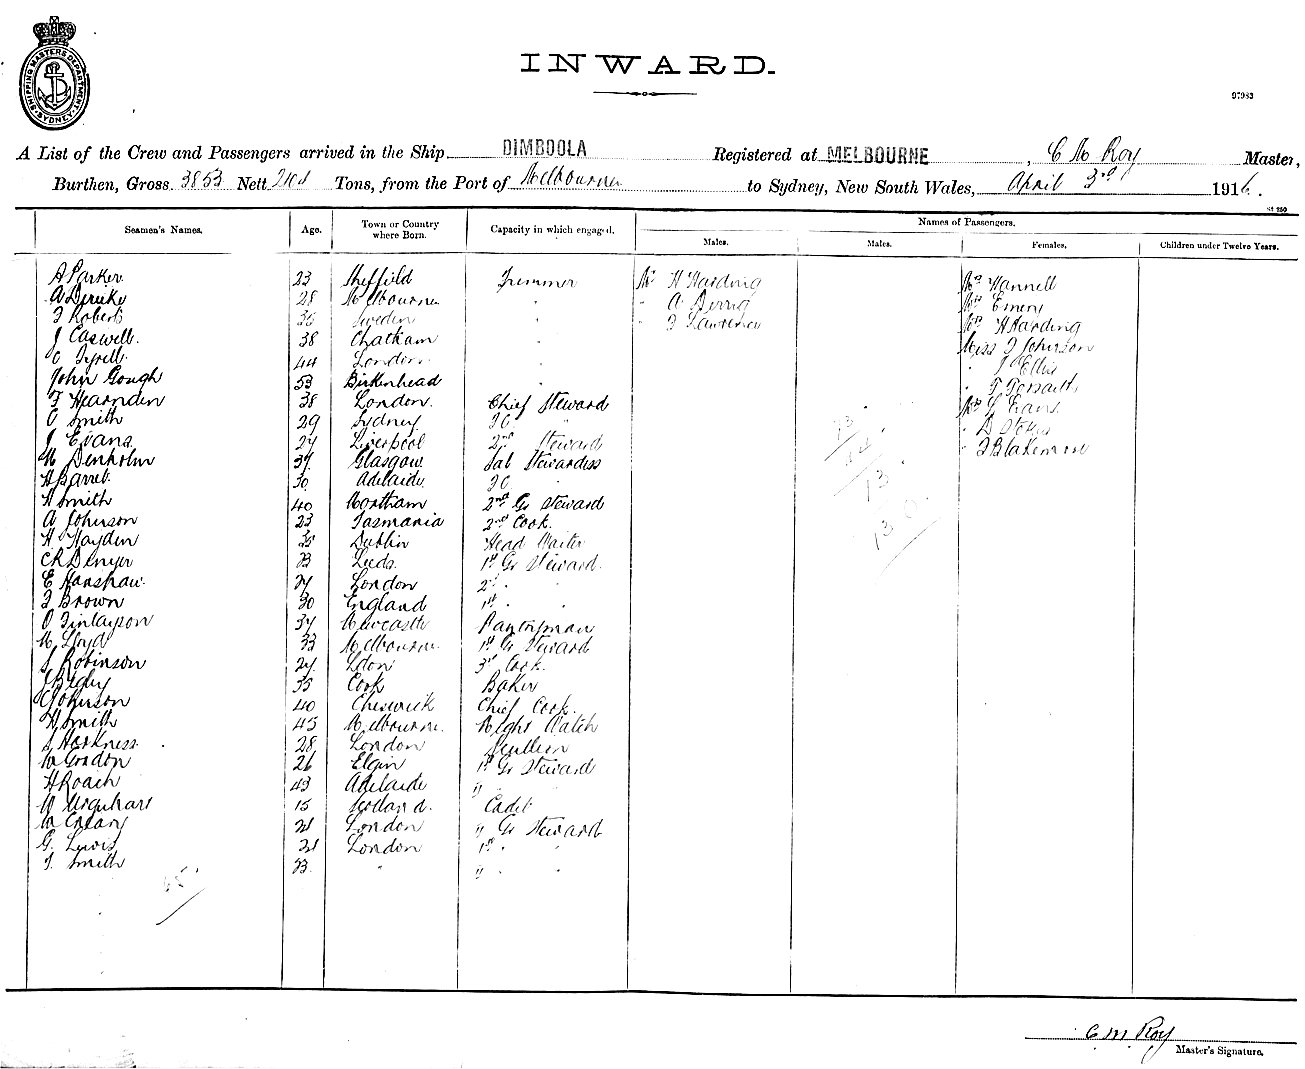 SHIPPING MASTERS DEPARTMENT SYDNEY
INWARD.
97983
A List of the Crew and Passengers arrived in the Ship DIMBOOLA Registered at MELBOURNE, C M Roy Master,
Burthen, Gross 3853 Nett Tons, from the Port of Melbourne to Sydney, New South Wales, April 3rd 1916.
St 250
Seamen's Names. Age. Town or Country where Born. Capacity in which engaged. Names of Passengers.
Males. Males. Females. Children under Twelve Years.
A Parker 23 Sheffield Trimmer Mr H Harding Mrs Hannell
28 Melbourne " " A Derrig Mrs Emery
J Roberts Sweden " " J Lawrence Mrs H Harding
J Caswell. 38 Chatham " Miss J Johnson
C Tyrell 44 London " " J Ellis
John Gough 53 Birkenhead " "
F Hearnden 38 London. Chief Steward Mrs G Evans
C Smith 29 Sydney Do "
J Evans 27 Liverpool 2nd Steward " J Blakemore
M Denholm 37 Glasgow Sal Stewardess
H Barret 30 Adelaide Do "
H Smith 40 Northam 2nd Gr Steward
A Johnson 23 Tasmania 2nd Cook.
H Hayden Dublin Head Waiter
C R Denyer 23 Leeds. 1st Gr Steward.
E Hanshaw 27 London 2nd " "
J Brown 30 England 1st " "
O Finlayson 37 Newcastle Pantryman
M Lloyd 33 Melbourne 1st Gr Steward
J Robinson 27 Ldon 3rd Cook.
J Begley 35 Cook Baker
C Johnson 40 Cheswick Chief Cook.
H Smith 45 Melbourne. Night Watch
J Harkness. 28 London Scullion
W Gordon 26 Elgin 1st Gr Steward
H Roach 43 Adelaide " "
W Urquhart 15 Scotland. Cadet
M Creary 21 London " Gr Steward
G. Lewis 21 London 1st " "
J. Smith 23. " " " "
13
12
13
130
45
C M Roy
Master's Signature.